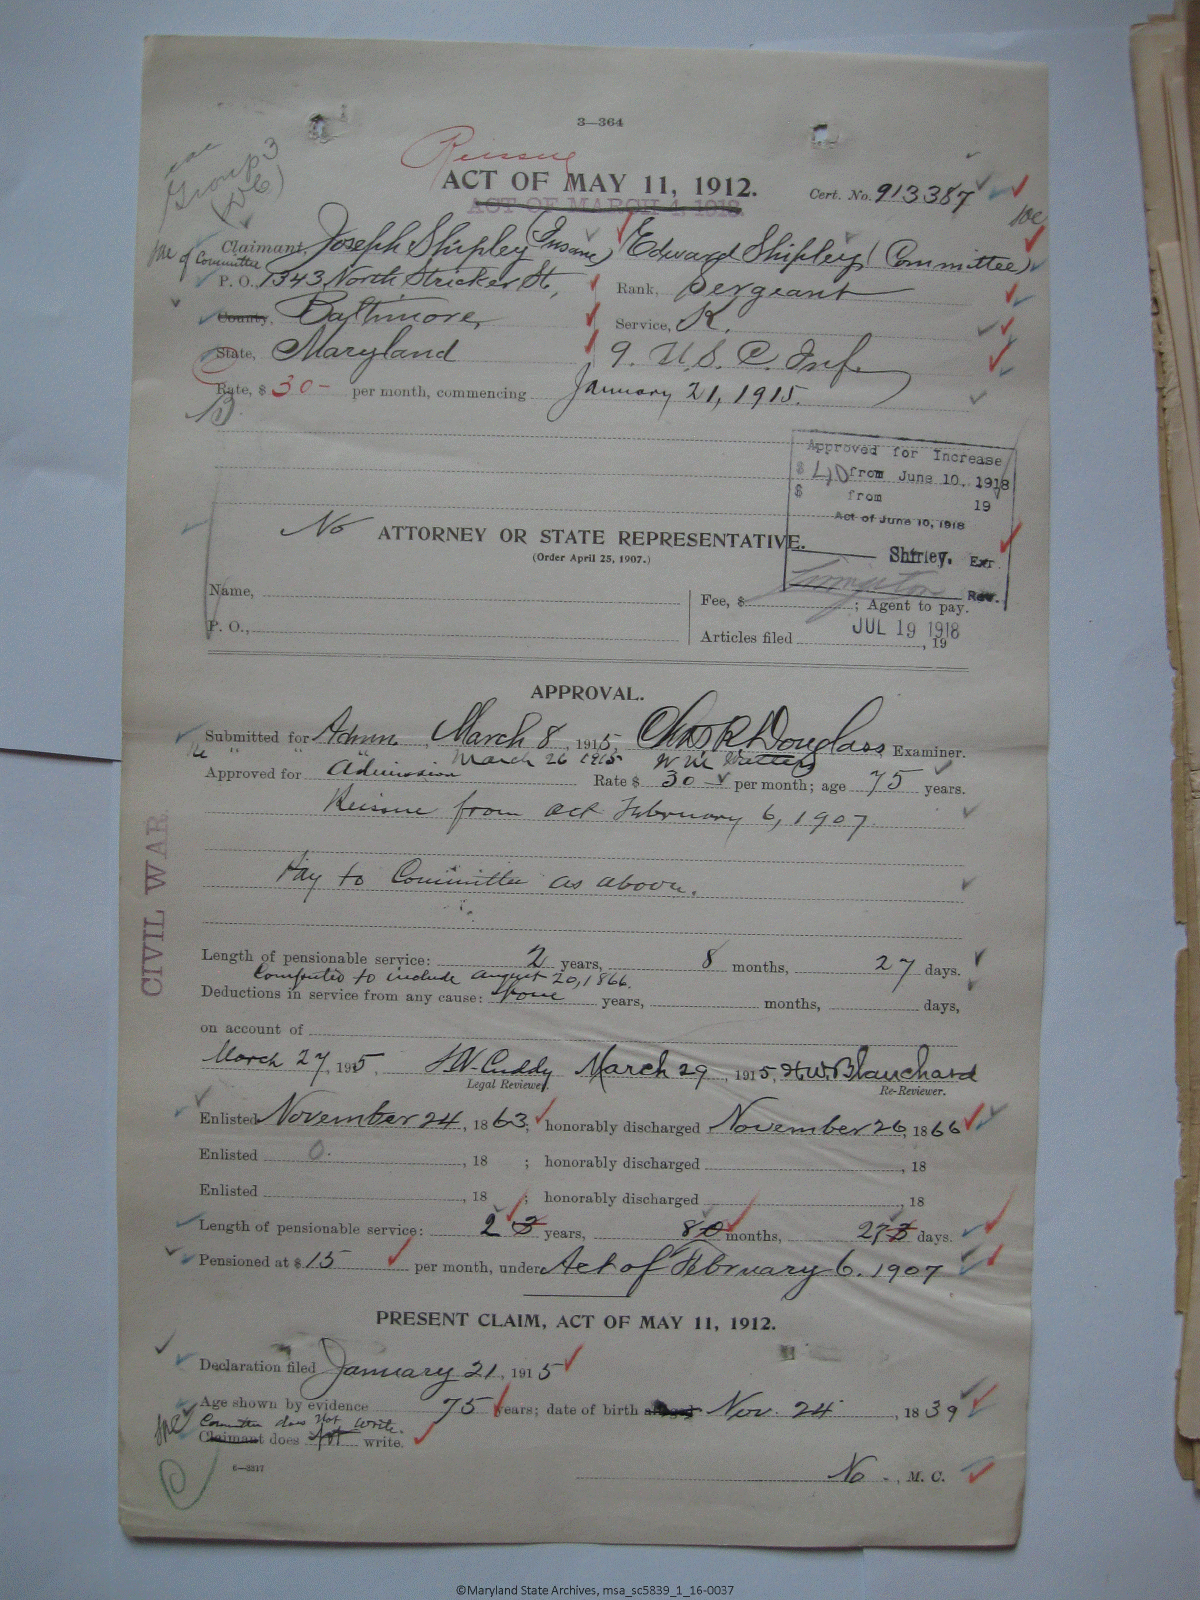 3—364
Reissue
Group 3
ACT OF MAY 11, 1912.
ACT OF MARCH 4, 1913.
Cert. No. 913387
Claimant, Joseph Shipley (Insane) Edward Shipley, (Committee)
of Committee
P. O. 1343 North Stricker St.,
Rank, Sergeant
County, Baltimore,
Service, K.
State, Maryland
9. U.S.C. Inf.
Rate, $ 30- per month, commencing January 21, 1915.
Approved for Increase
$ 40 from June 10, 1918
$ from 19
Act of June 10, 1918
Shirley. Exr.
Livingston Rev.
No ATTORNEY OR STATE REPRESENTATIVE.
(Order April 25, 1907.)
Name,
Fee, $ ; Agent to pay.
P. O.,
Articles filed , 19
JUL 19 1918
APPROVAL.
Submitted for Admn. March 8, 1915, Chas R Douglass, Examiner.
" " March 26 1915
Approved for Admission Rate $ 30 per month; age 75 years.
Reissue from act February 6, 1907.
Pay to Committee as above.
CIVIL WAR
Length of pensionable service: 2 years, 8 months, 27 days.
Computed to include August 20, 1866.
Deductions in service from any cause: None years, months, days,
on account of
March 27, 1915, Cuddy March 29, 1915, H.W. Blanchard
Legal Reviewer. Re-Reviewer.
Enlisted November 24, 1863; honorably discharged November 26, 1866
Enlisted 0. , 18 ; honorably discharged , 18
Enlisted , 18 ; honorably discharged , 18
Length of pensionable service: 2 3 years, 8 0 months, 27 3 days.
Pensioned at $ 15 per month, under Act of February 6. 1907
PRESENT CLAIM, ACT OF MAY 11, 1912.
Declaration filed January 21, 1915
Age shown by evidence 75 years; date of birth Nov. 24 , 1839
Committee does not write.
Claimant does not write.
6—3317
No , M. C.
©Maryland State Archives, msa_sc5839_1_16-0037